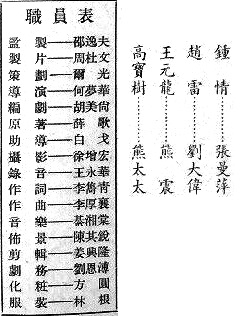 職員表
監製——邵逸夫
製片——周杜文
策劃——爾光
導演——何夢華
編劇——胡美尚
原著——薛歌
助導——白戈
攝影——徐增宏
錄音——王永華
作詞——李雋青
作曲——李厚襄
音樂——綦湘棠
佈景——陳其銳
剪輯——姜興隆
劇務——劉恩溥
化粧——方圓
服裝——林根
鍾情……張曼萍
趙雷……劉大偉
王元龍……熊震
高寶樹……熊太太